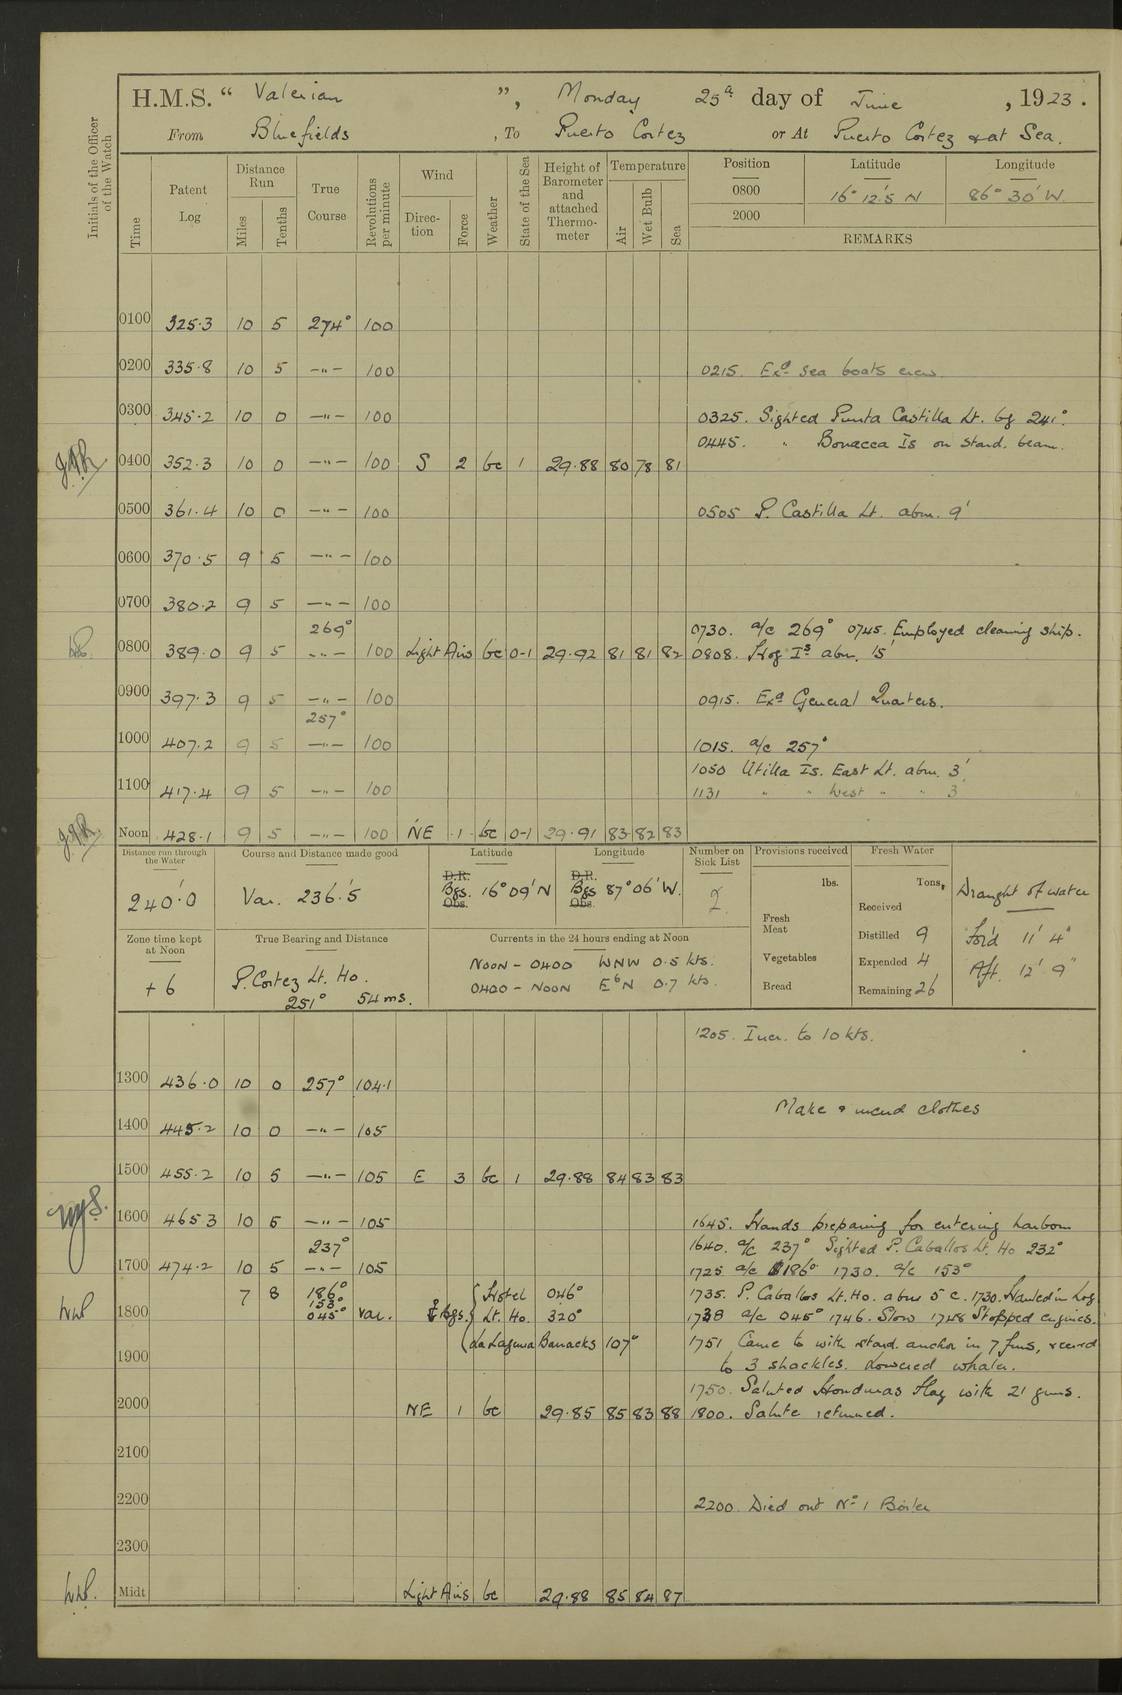 H.M.S. “ Valerian ”, Monday 25th day of June , 1923.
From Bluefields , To Puerto Cortez or At Puerto Cortez & at Sea.
Initials of the Officer of the Watch
Time Patent Log Distance Run Miles Tenths True Course Revolutions per minute Wind Direction Force Weather State of the Sea Height of Barometer and attached Thermometer Temperature Air Wet Bulb Sea Position Latitude Longitude
0800 16° 12'.5 N 86° 30' W.
2000
REMARKS
0100 325.3 10 5 274° 100
0200 335.8 10 5 —"— 100 0215. Exd Sea boats crew.
0300 345.2 10 0 —"— 100 0325. Sighted Punta Castilla Lt. bg 241°.
0445. " Bonacca Is on Starbd. beam.
0400 352.3 10 0 —"— 100 S 2 bc 1 29.88 80 78 81
0500 361.4 10 0 —"— 100 0505 P. Castilla Lt. abm. 9'
0600 370.5 9 5 —"— 100
0700 380.2 9 5 —"— 100
269° 0730. a/c 269° 0745. Employed cleaning ship.
0800 389.0 9 5 —"— 100 Light Airs bc 0-1 29.92 81 81 82 0808. Hog Is abm. 15'
0900 397.3 9 5 —"— 100 0915. Exd General Quarters.
257°
1000 407.2 9 5 —"— 100 1015. a/c 257°
1050 Utilla Is. East Lt. abm. 3'.
1100 417.4 9 5 —"— 100 1131 " " West " " 3
Noon 428.1 9 5 —"— 100 NE 1 bc 0-1 29.91 83 82 83
Distance run through the Water Course and Distance made good Latitude Longitude Number on Sick List Provisions received Fresh Water
240'.0 Var. 236'.5 D.R. Bgs. Obs. 16° 09' N D.R. Bgs Obs. 87° 06' W. 2 lbs. Tons, Draught of water
Received
Fresh Meat Distilled 9 For'd 11' 4"
Zone time kept at Noon True Bearing and Distance Currents in the 24 hours ending at Noon
+ 6 P. Cortez Lt. Ho. 251° 54 ms. Noon - 0400 WNW 0.5 kts. Vegetables Expended 4 Aft. 12' 9"
0400 - Noon EbN 0.7 kts. Bread Remaining 26
1205. Incr. to 10 kts.
1300 436.0 10 0 257° 104.1
Make & mend clothes
1400 445.2 10 0 —"— 105
1500 455.2 10 5 —"— 105 E 3 bc 1 29.88 84 83 83
1600 465 3 10 5 —"— 105 1645. Hands preparing for entering harbour
237° 1640. a/c 237° Sighted P. Caballos Lt. Ho 232°
1700 474.2 10 5 —"— 105 1725 a/c 186° 1730. a/c 153°
7 8 186° Hotel 046° 1735. P. Caballos Lt. Ho. abm 5 c. 1730. Hauled in Log
1800 153° 045° Var. Bgs. Lt. Ho. 320° 1738 a/c 045° 1746. Slow 1748 Stopped engines.
La Laguna Barracks 107° 1751 Came to with starbd. anchor in 7 fms, veered
1900 to 3 shackles. Lowered whaler.
1750. Saluted Honduras flag with 21 guns.
2000 NE 1 bc 29.85 85 83 88 1800. Salute returned.
2100
2200 2200. Died out No 1 Boiler
2300
Midt Light Airs bc 29.88 85 84 87